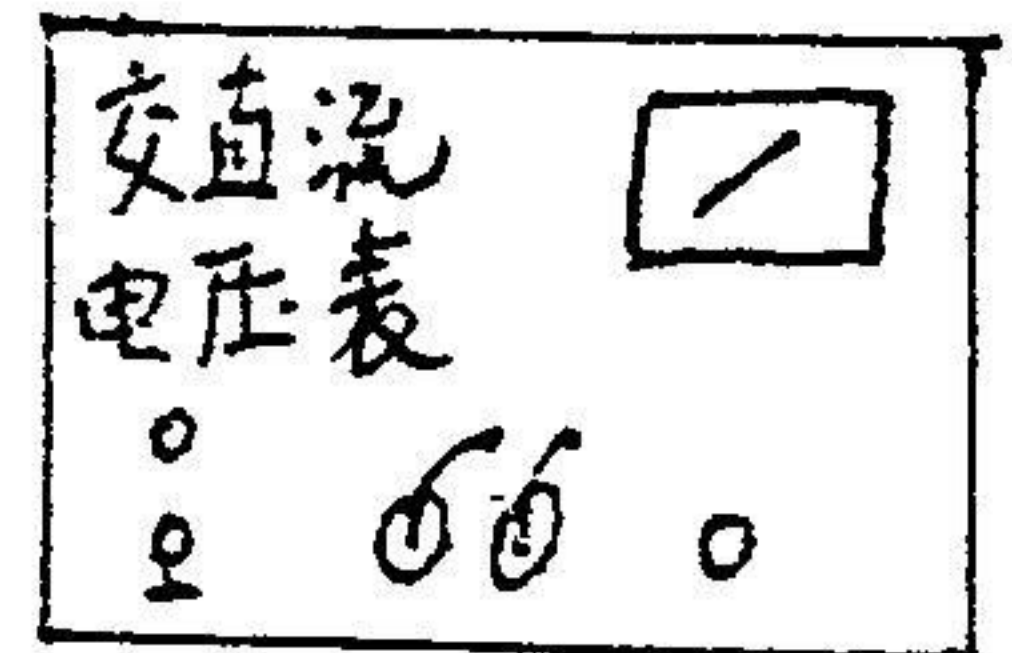 交直流
电压表